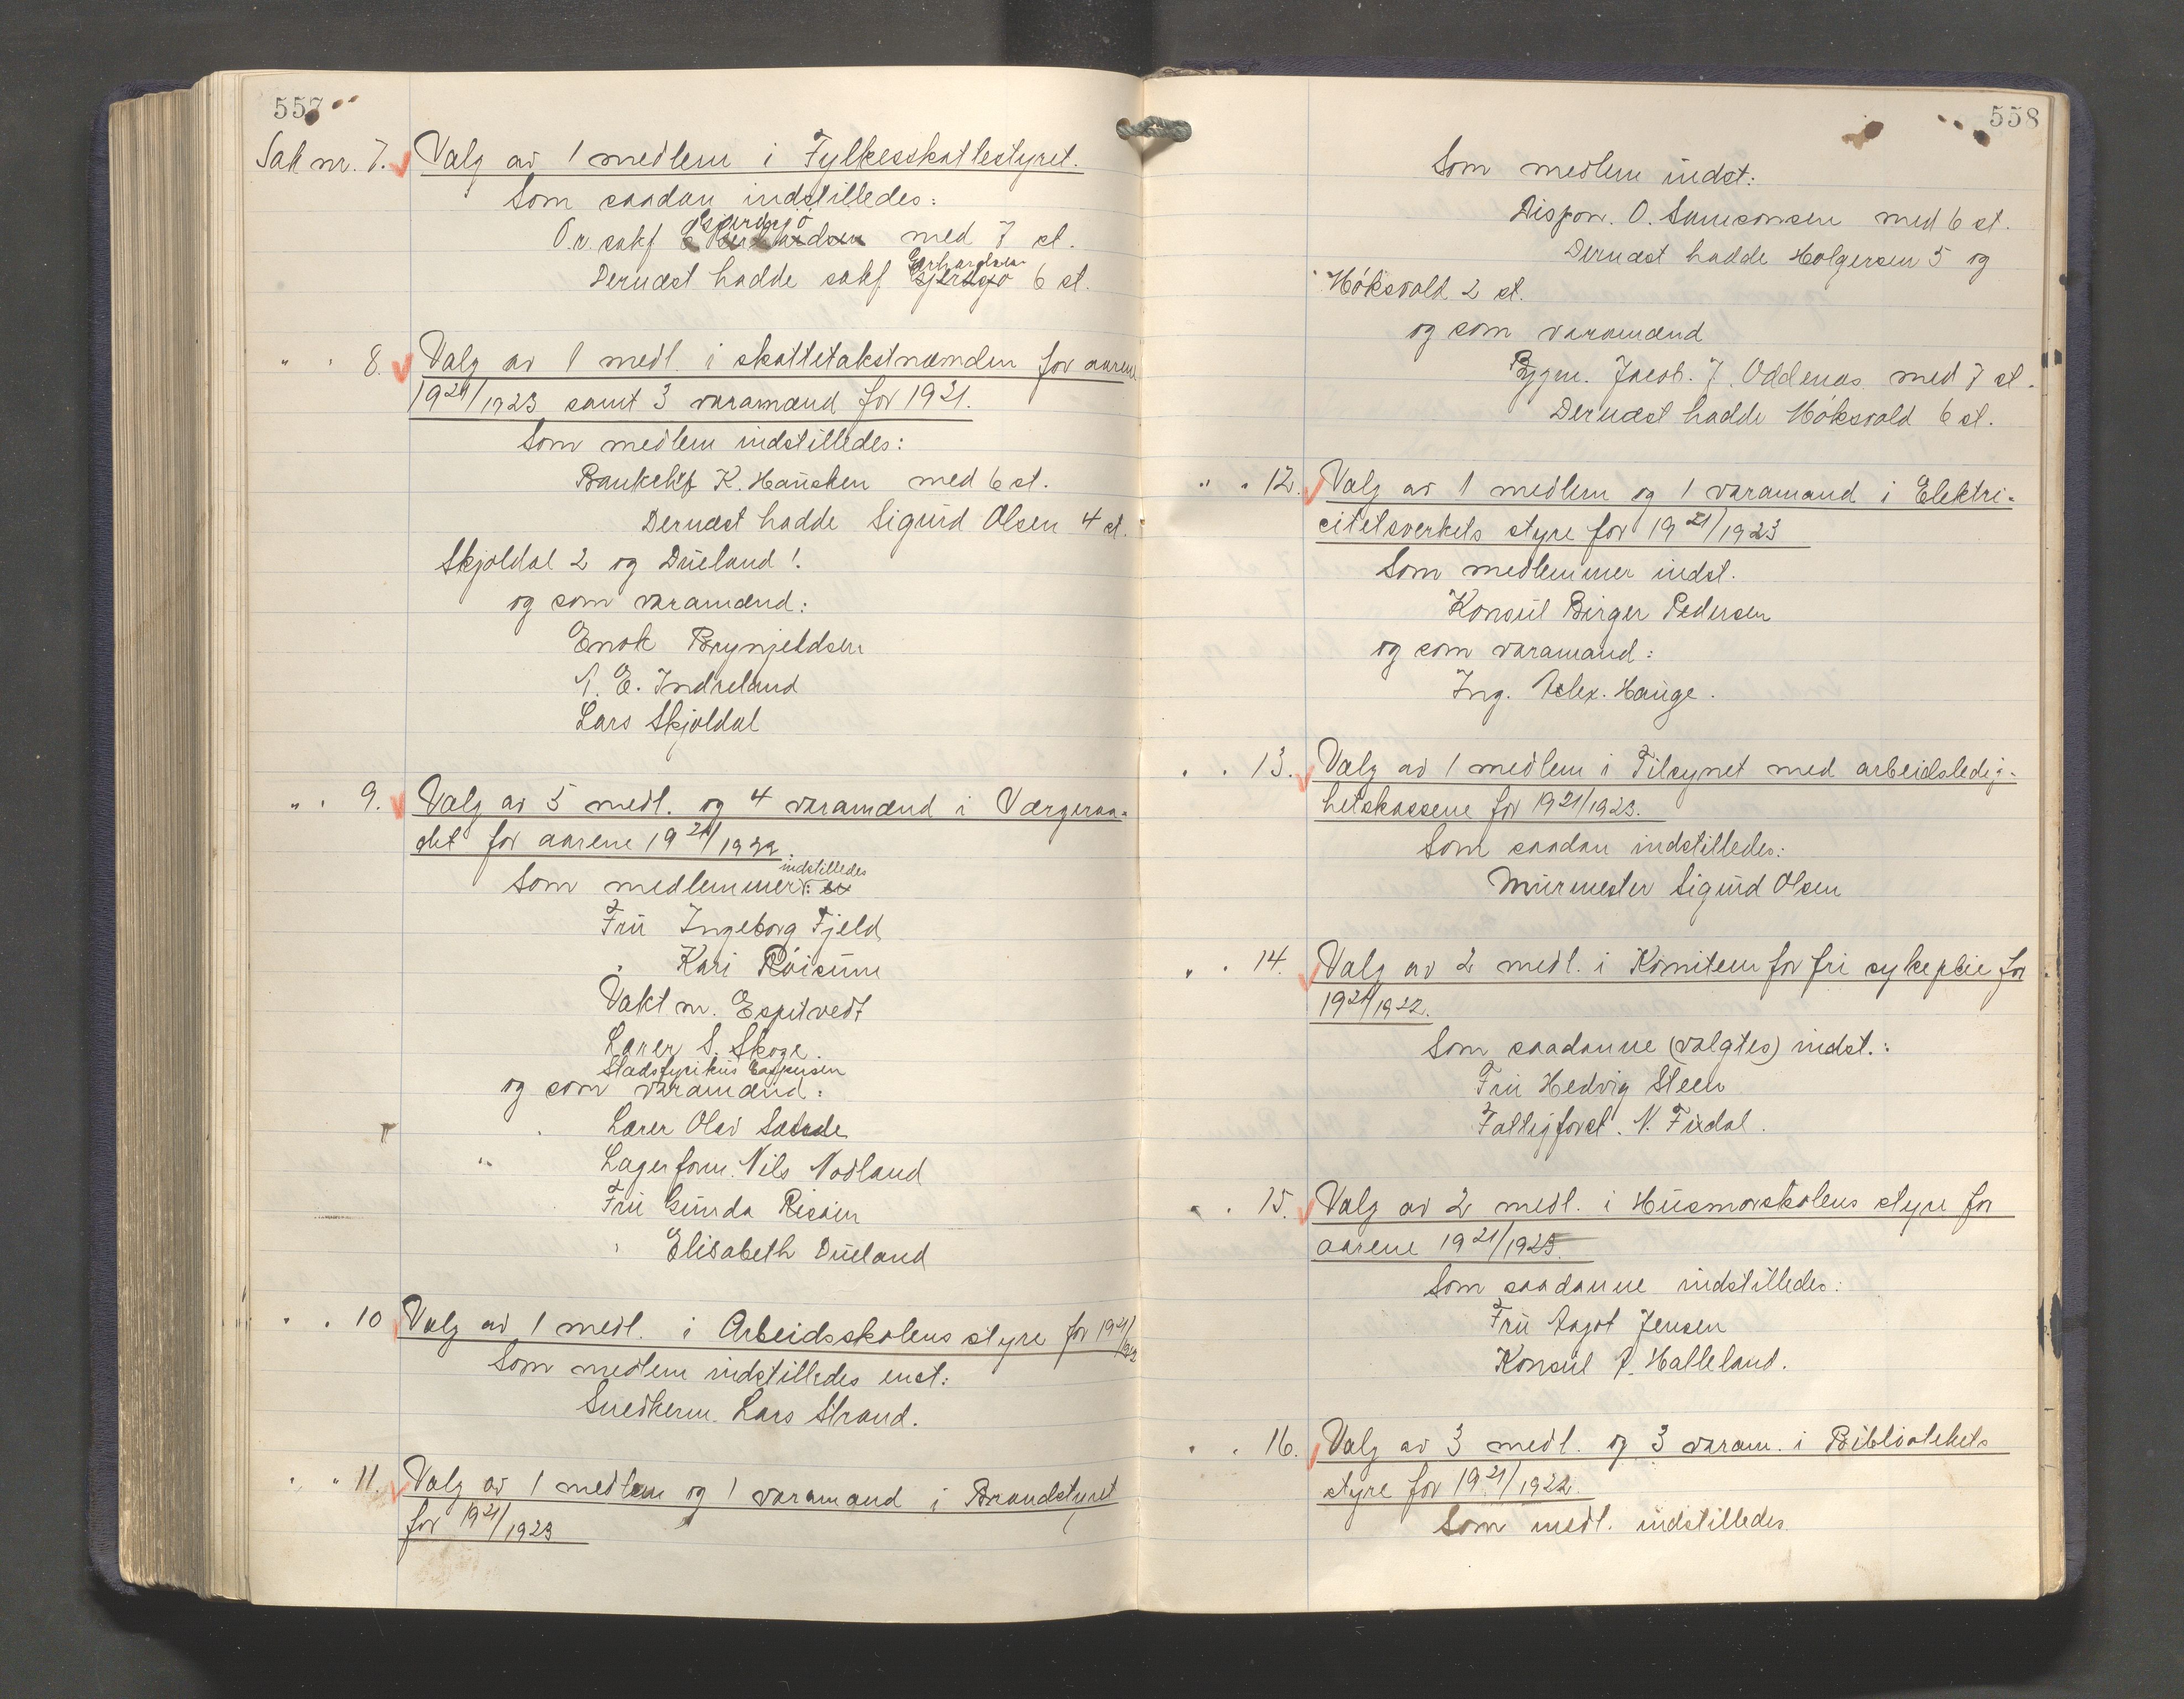 557
Sak nr. 7. Valg av 1 medlem i Fylkesskattestyret.
Som saadan indstilledes:
Gjerdsjø
O.r. sakf med 7 st.
Gerhardsen
Dernæst hadde sakf Gjerdsjø 6 st.
" " 8. Valg av 1 medl. i skattetakstnemnden for aarene
1921/1923 samt 3 varamænd for 1921.
Som medlem indstilledes:
Bankchef K. Hausken med 6 st.
Dernæst hadde Sigurd Olsen 4 st.
Skjoldal 2 og Dueland 1.
og som varamænd:
Enok Brynjeldsen
A. E. Indreland
Lars Skjoldal
" " 9. Valg av 5 medl. og 4 varamænd i Værgeraa-
det for aarene 1921/1922.
indstilledes
Som medlemmer:
Fru Ingeborg Fjeld
" Kari Røisum
Vaktm. Espitvedt
Lærer S. Skoge.
Stadsfysikus Caspersen
og som varamænd:
Lærer Olav
" Lagerform. Nils Nodland
Fru Gunda Risøen
" Elisabeth Dueland
" " 10 Valg av 1 medl. i Arbeidsskolens styre for 1921/1922
Som medlem indstilledes enst:
Snedkerm. Lars Strand.
" " 11. Valg av 1 medlem og 1 varamand i Brandstyret
for 1921/1923
558
Som medlem indst:
Dispon. O. Samsonsen med 6 st.
Dernæst hadde Holgersen 5 og
Høksvold 2 st.
og som varamænd
Byggm. Jacob. J. Oddenæs med 7 st.
Dernæst hadde Høksvold 6 st.
" " 12. Valg av 1 medlem og 1 varamand i Elektri-
citetsverkets styre for 1921/1923
Som medlemmer indst.
Konsul Birger Pedersen
og som varamand:
Ing. Alex. Hauge.
" " 13. Valg av 1 medlem i Tilsynet med arbeidsledig-
hetskassene for 1921/1923.
Som saadan indstilledes:
Murmester Sigurd Olsen
" " 14. Valg av 2 medl. i Komiteen for fri sykepleie for
1921/1922.
Som saadanne (valgtes) indst.:
Fru Hedvig Steen
Fattigforst. N. Fixdal.
" " 15. Valg av 2 medl. i Husmorskolens styre for
aarene 1921/1925.
Som saadanne indstilledes:
Fru Aagot Jensen
Konsul P. Halleland.
" " 16. Valg av 3 medl. og 3 varam. i Bibliotekets
styre for 1921/1922.
Som medl. indstilledes